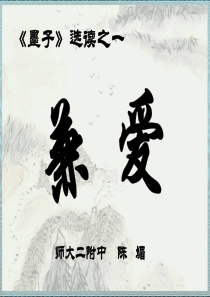 《墨子》选读之一
兼爱
师大二附中 陈 媚